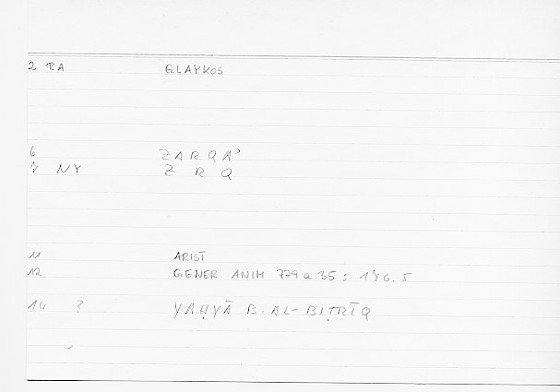 2 RA GLAYKOS
6 ZARQAʾ
7 NY Z R Q
11 ARIST
12 GENER ANIM 779 a 35 : 186,5
14 ? YAḤYĀ B. AL-BIṬRĪQ